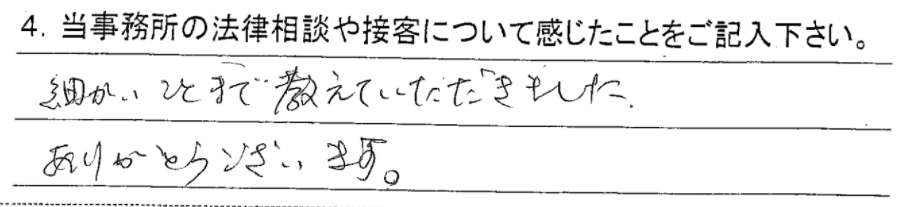 4. 当事務所の法律相談や接客について感じたことをご記入下さい。
細かいことまで教えていただきました。
ありがとうございます。